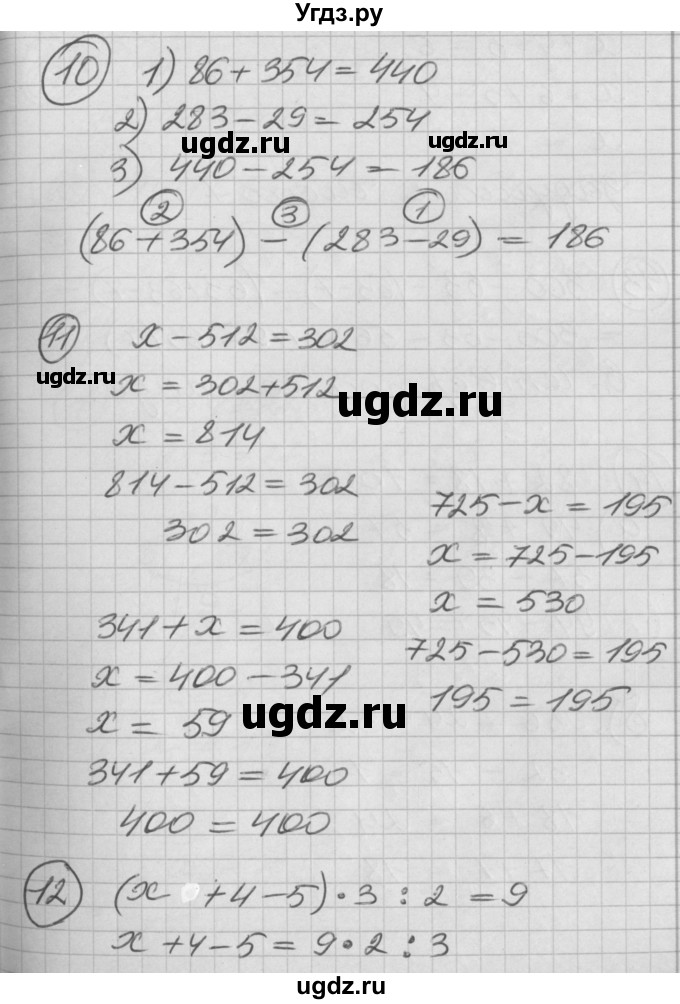 Угдз.ру
10 1) 86 + 354 = 440
2) 283 - 29 = 254
ugdz.ru ugdz.ru
3) 440 - 254 = 186
2 3 1
(86 + 354) - (283 - 29) = 186
11 x - 512 = 302
ugdz.ru
x = 302 + 512
ugdz.ru
x = 814
814 - 512 = 302
302 = 302
725 - x = 195
x = 725 - 195
x = 530
725 - 530 = 195
195 = 195
341 + x = 400
x = 400 - 341
ugdz.ru
x = 59
341 + 59 = 400
400 = 400
12 (x + 4 - 5) · 3 : 2 = 9
x + 4 - 5 = 9 · 2 : 3